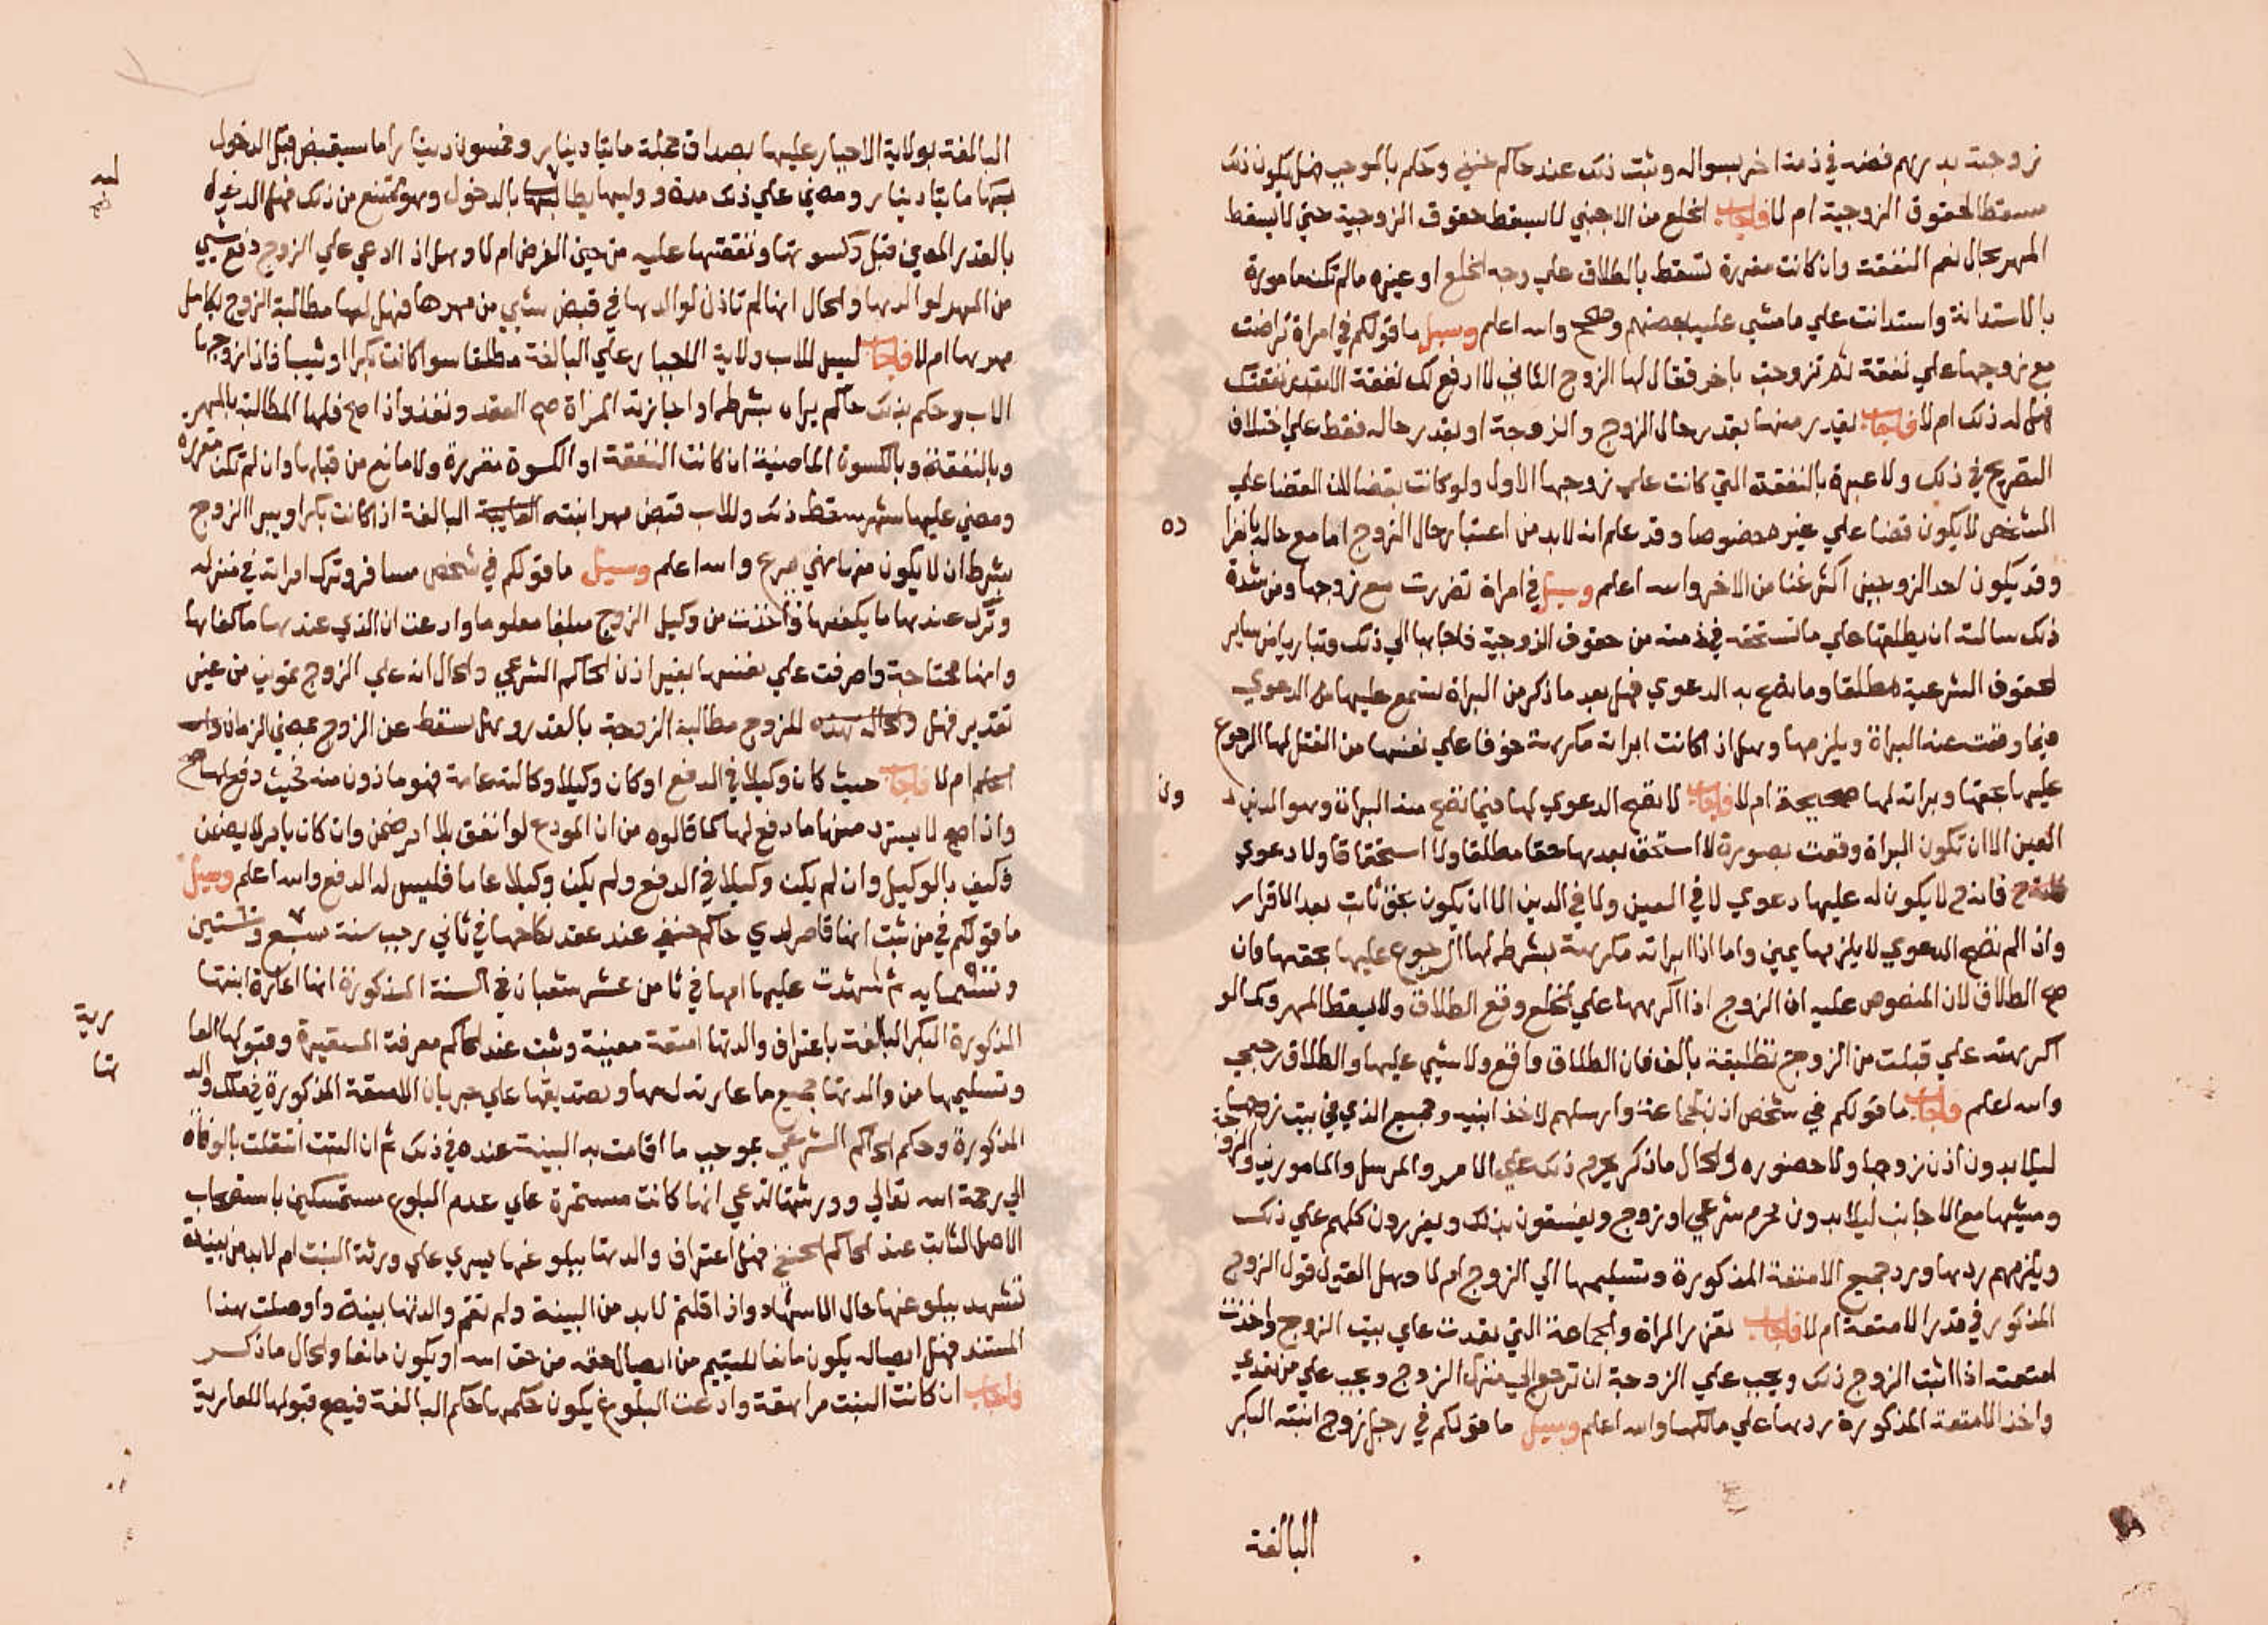 زوجته بدرهم فضه في ذمة اخر بسواله وثبت ذلك عند حاكم حنفي وحكم بالموجب فهل يكون ذلك
مسقطا لحقوق الزوجية ام لا فاجاب الخلع من الاجنبي لا يسقط حقوق الزوجية حتي لا يسقط
المهر بحال نعم النفقة وان كانت مقررة تسقط بالطلاق علي وجه الخلع او غيره ما لم تكن مامورة
بالاستدانة واستدانت علي ما مشي عليه بعضهم وصحح والله اعلم وسيل ما قولكم في امراة تراضت
مع زوجها علي نفقة ثم تزوجت باخر فقال لها الزوج الثاني لا ادفع لك نفقة الا بقدر نفقتك
فهل له ذلك ام لا فاجاب يقدر منها بقدر حال الزوج والزوجة او بقدر حاله فقط علي اختلاف
التصريح في ذلك ولا عبرة بالنفقة التي كانت علي زوجها الاول ولو كانت بقضا لان القضا علي
الشخص لا يكون قضا علي غيره خصوصا وقد علم انه لا بد من اعتبار حال الزوج اما مع حالها بانفرا
ده
وقد يكون احد الزوجين اكثر غنا من الاخر والله اعلم وسيل في امراة تضررت مع زوجها ومن شدة
ذلك سالته ان يطلقها علي ما تستحقه في ذمته من حقوق الزوجية فاجابها الي ذلك وتباريا من ساير
الحقوق الشرعية مطلقا وما تصح به الدعوي فهل بعد ما ذكر من البراة تسمع عليها منه الدعوي
فيما وقعت عنه البراة ويلزمها وهل اذا كانت ابراته مكرهة خوفا علي نفسها من القتل لها الرجوع
عليه بحقها وبراته لها صحيحة ام لا فاجاب لا تصح الدعوي لها فيما تصح منه البراة وهو الدين د
ون
العين الا ان تكون البراة وقعت بصورة لا استحق بعدها حقا مطلقا ولا استحقاقا ولا دعوي
فانه ح لا يكون له عليها دعوي لا في العين ولا في الدين الا ان يكون بحق ثابت بعد الاقرار
واذا لم تصح الدعوي لا يلزمها يمين واما اذا ابراته مكرهة بشرطه لها الرجوع عليها بحقها وان
صح الطلاق لان المنصوص عليه ان الزوج اذا اكرهها علي الخلع وقع الطلاق ولا يسقط المهر وكما لو
اكرهته علي قبلت من الزوج تطليقة بالف فان الطلاق واقع ولا شيي عليها والطلاق رجعي
والله اعلم فاجاب ما قولكم في شخص اذن لجماعة وارسلهم لاخذ ابنيه وجميع الذي في بيت زوجها
ليلا بدون اذن زوجها ولا حضوره والحال ما ذكر يحرم ذلك علي الامر والمرسل والمامورين والزو
جة
ومشيها مع الاجانب ليلا بدون محرم شرعي او زوج ويفسقون بذلك ويعزرون كلهم علي ذلك
ويلزمهم ردها ورد جميع الامتعة المذكورة وتسليمها الي الزوج ام لا وهل القول قول الزوج
المذكور في قدر الامتعة ام لا فاجاب تعزر المراة والجماعة التي تعدت علي بيت الزوج واخذت
امتعته اذا اثبت الزوج ذلك ويجب علي الزوجة ان ترجع الي منزل الزوج ويجب علي من تعدي
واخذ الامتعة المذكورة ردها علي مالكها والله اعلم وسيل ما قولكم في رجل زوج ابنته البكر
البالغة
البالغة بولاية الاجبار عليها بصداق جملة مايتا دينار وخمسون دينارا ما سيقبض قبل الدخول
منها مايتا دينار ومضي علي ذلك مدة ووليها يطالبها بالدخول وهو ممتنع من ذلك فهل الدخول
بالقدر المعين قبل وكسوتها ونفقتها عليه من حين الفرض ام لا وهل اذا ادعي علي الزوج دفع شيي
من المهر لوالدها والحال انها لم تاذن لوالدها في قبض شيي من مهرها فهل لها مطالبة الزوج بكامل
مهرها ام لا فاجاب ليس للاب ولاية الاجبار علي البالغة مطلقا سوا كانت بكرا او ثيبا فاذا زوجها
الاب وحكم بذلك حاكم يراه بشرطه او اجازته المراة صح العقد ونفذ واذا صح فلها المطالبة بالمهر
وبالنفقة وبالكسوة الماضية ان كانت النفقة او الكسوة مقررة ولا مانع من قبلها وان لم تكن مقررة
ومضي عليها شهر سقط ذلك وللاب قبض مهر ابنته البالغة اذا كانت بكرا ويبرا الزوج
بشرط ان لا يكون منها نهي صرع والله اعلم وسيل ما قولكم في شخص مسافر وترك امراته في منزله
وترك عندها ما يكفيها واخذت من وكيل الزوج مبلغا معلوما وادعت ان الذي عندها ما كفاها
وانها محتاجة واصرفت علي نفسها بغير اذن الحاكم الشرعي والحال انه علي الزوج تموين من غير
تقدير فهل والحاله هذه للزوج مطالبة الزوجة بالقدر وهل تسقط عن الزوج بمضي الزمان والله
اعلم ام لا فاجاب حيث كان وكيلا في الدفع او كان وكيلا وكالة عامة فهو ماذون منه فحيث دفع لها صح
واذا صح لا يسترد منها ما دفع لها كما قالوه من ان المودع لو انفق بلا امر ضمن وان كان بامر لا يضمن
فكيف بالوكيل وان لم يكن وكيلا في الدفع ولم يكن وكيلا عاما فليس له الدفع والله اعلم وسيل
ما قولكم في من ثبت انها قاصر لدي حاكم حنفي عند عقد نكاحها في ثاني رجب سنة سبع وستين
وتسعمايه ثم شهدت عليها امها في ثامن عشر شعبان في السنة المذكورة انها اعارة ابنتها
المذكورة البكر البالغة باعتراف والدتها امتعة معينة وثبت عند الحاكم معرفة المستعيرة وقبولها العا
رية
وتسليمها من والدتها جميع ما عارته لها وتصديقها علي جريان الامتعة المذكورة في ملك والد
تها
المذكورة وحكم الحاكم الشرعي بموجب ما اقامت به البينة عنده في ذلك ثم ان البنت انتقلت بالوفاة
الي رحمة الله تعالي وورثتها تدعي انها كانت مستمرة علي عدم البلوغ مستمسكين باستصحاب
الاصل الثابت عند الحاكم الحنفي فهل اعتراف والدتها ببلوغها يسري علي ورثة البنت ام لا بد من بينة
تشهد ببلوغها حال الاشهاد واذا قلتم لا بد من البينة ولم تقم والدتها بينة واوصلت هذا
المستند فهل ايصاله يكون مانعا لليتيم من ايصال حقه من حق الله او يكون مانعا والحال ما ذكر
فاجاب ان كانت البنت مراهقة وادعت البلوغ يكون حكمها حكم البالغة فيصح قبولها للعارية